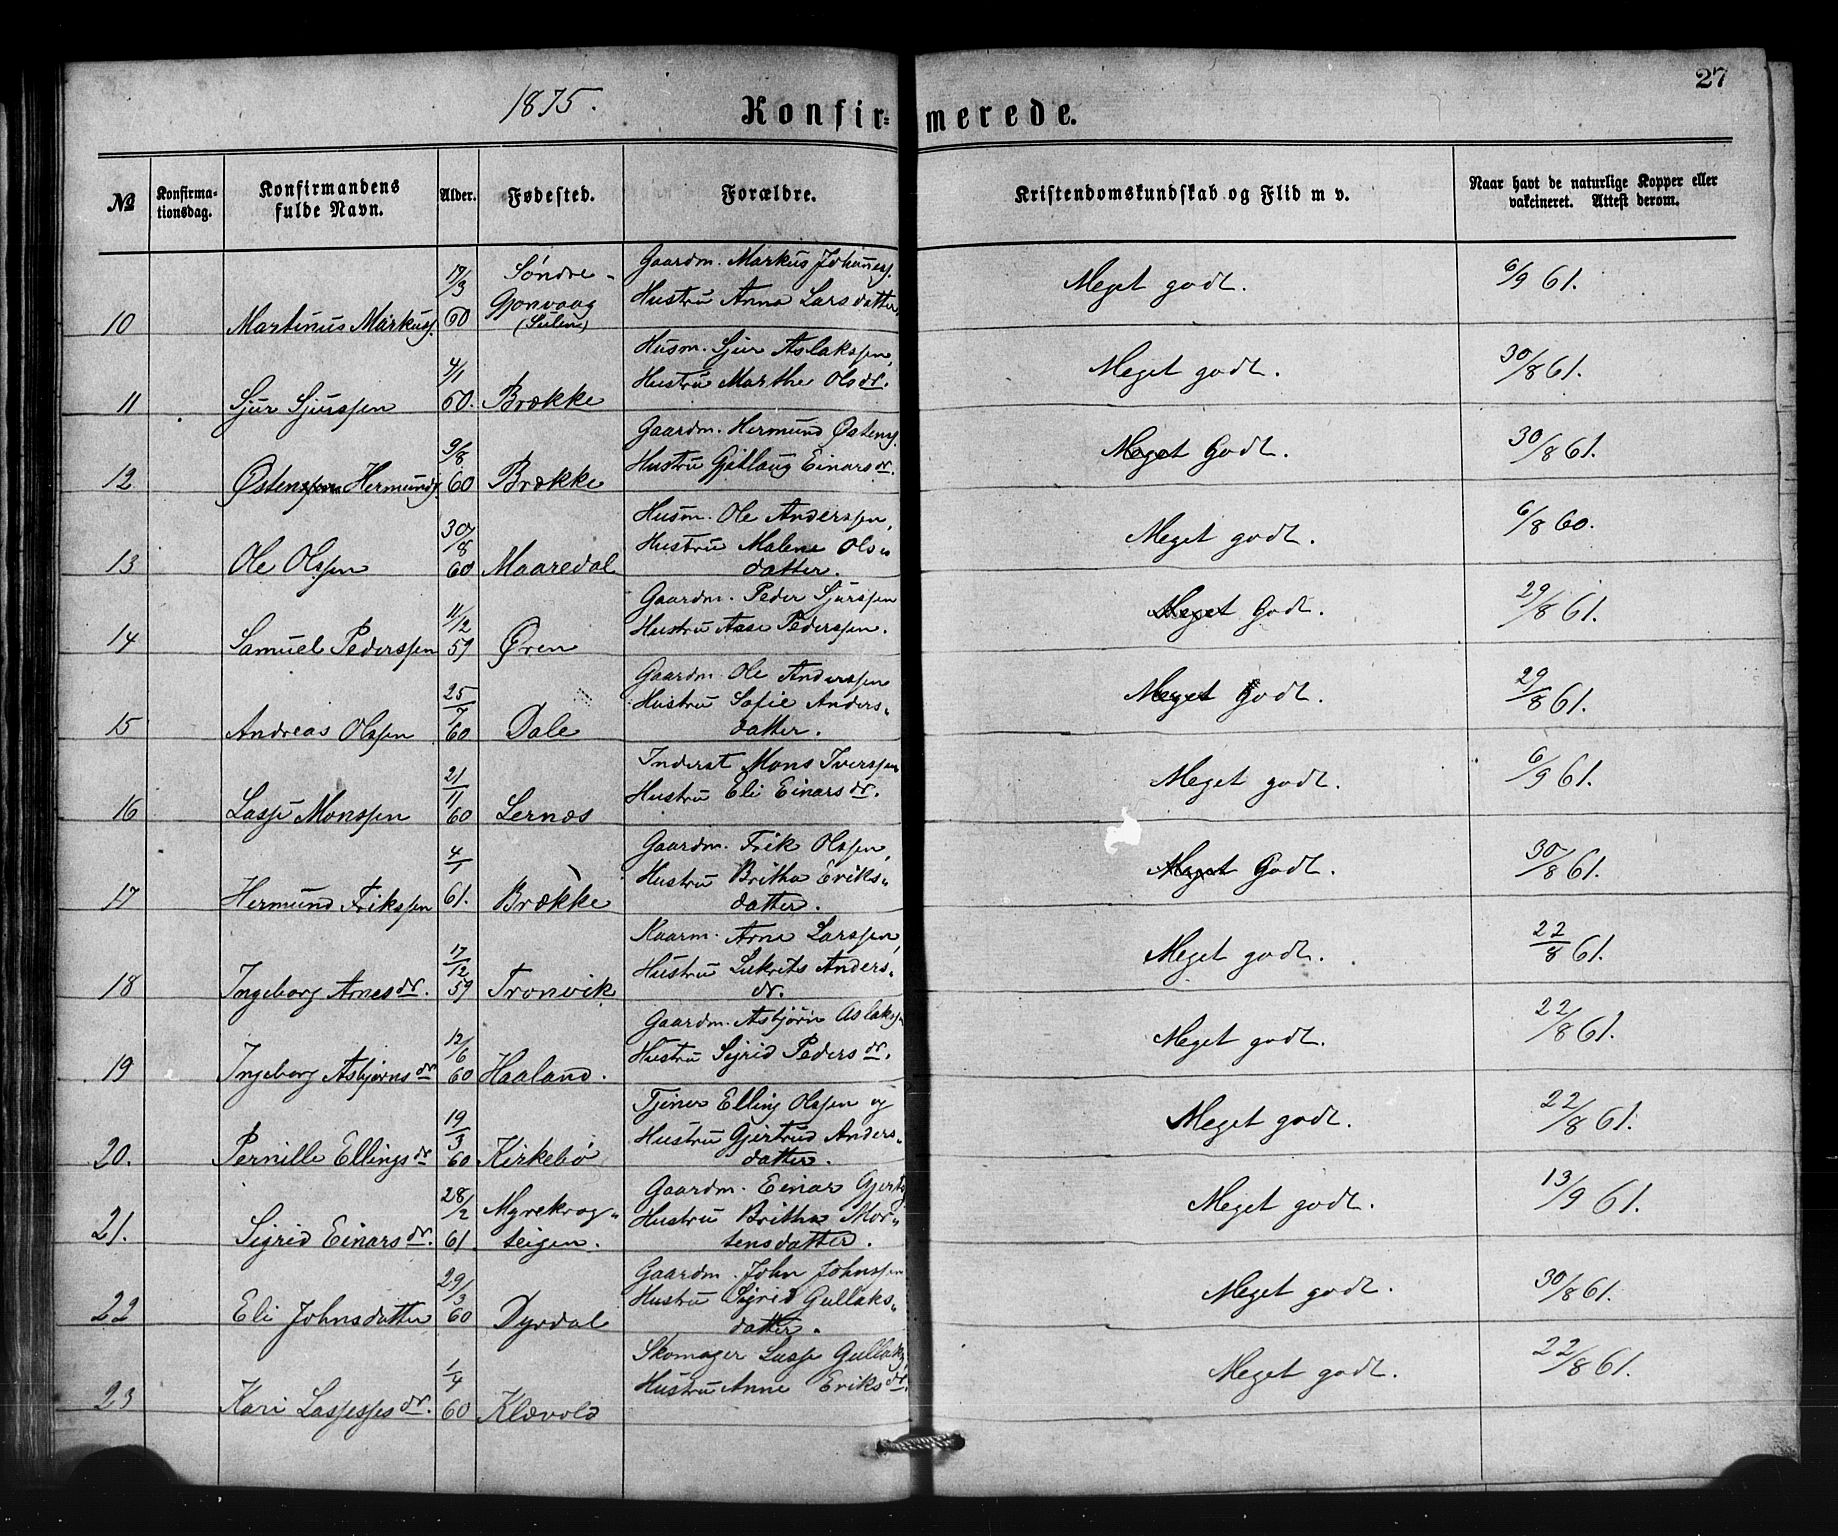 27
1875.
Konfir=merede.
№
Konfirma-
tionsdag.
Konfirmandens
fulde Navn.
Alder.
Fødested.
Forældre.
Kristendomskundskab og Flid m v.
Naar havt de naturlige Kopper eller
vakcineret. Attest derom.
10 Martinus Markuss. 19/3 60 Søndre-
Gjonvaag
(Sulen)
Gaardm. Markus Johaness.
Hustru Anna Larsdatter,
Meget godt. 6/9 61.
11 Sjur Sjurssen 4/1 60. Brække
Husm. Sjur Aslakssen,
Hustru Marthe Olsdr.
Meget godt. 30/8 61.
12 Østenssen Hermunds. 9/8 60 Brække
Gaardm. Hermund Østens.
Hustru Gjetlaug Einarsdr.
Meget Godt. 30/8 61.
13 Ole Olssen 30/8 60 Maaredal
Husm. Ole Anderssen,
Hustru Malene Ols„
datter.
Meget godt. 6/8 60.
14 Samuel Pederssen 11/12 59 Øren
Gaardm. Peder Sjurssen
Hustru Aase Pederssen.
Meget Godt. 29/8 61.
15 Andreas Olssen 25/7 60 Dale
Gaardm. Ole Anderssen
Hustru Sofie Anders„
datter.
Meget Godt. 29/8 61.
16 Lasse Monssen 21/11 60 Lernæs
Inderst Mons Iverssen
Hustru Eli Einarsdr.
Meget godt. 6/9 61.
17 Hermund Erikssen 4/1 61. Brække
Gaardm. Erik Olssen,
Hustru Britha Eriks„
datter.
Meget Godt. 30/8 61.
18 Ingeborg Arnesdr. 17/12 59 Tronvik
Kaarm. Arne Larssen,
Hustru Lukrits Anders„
dr.
Meget godt. 22/8 61.
19 Ingeborg Asbjørnsdr 12/6 60 Haaland.
Gaardm. Asbjørn Aslakss
Hustru Sigrid Pedersdr.
Meget godt. 22/8 61.
20. Pernille Ellingsdr 19/3 60 Kirkebø
Tjener Elling Olssen og
Hustru Gjertrud Anders„
datter.
Meget godt. 22/8 61.
21. Sigrid Einarsdr. 28/2 61. Myrekrog„
teigen.
Gaardm. Einar
Hustru Britha Mor„
tensdatter.
Meget godt. 13/9 61.
22 Eli Johnsdatter 29/3 60 Dyrdal
Gaardm. John Johnssen
Hustru Sigrid Gullaks„
datter.
Meget godt. 30/8 61.
23 Kari Lassessdr. 1/4 60 Klævold
Skomager Lasse Gullaks,
Hustru Anne Eriksdr.
Meget godt. 22/8 61.